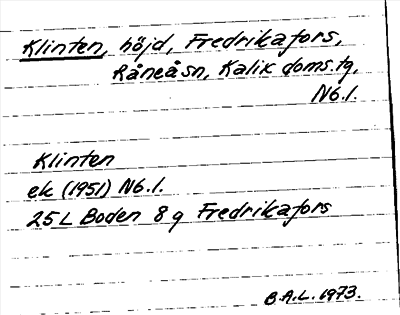 Klinten, höjd, Fredrikafors,
Råneåsn, Kalix doms.tg,
Nb.l.
Klinten
ek (1951) Nb.l.
25L Boden 8g Fredrikafors
B.A.L. 1973.